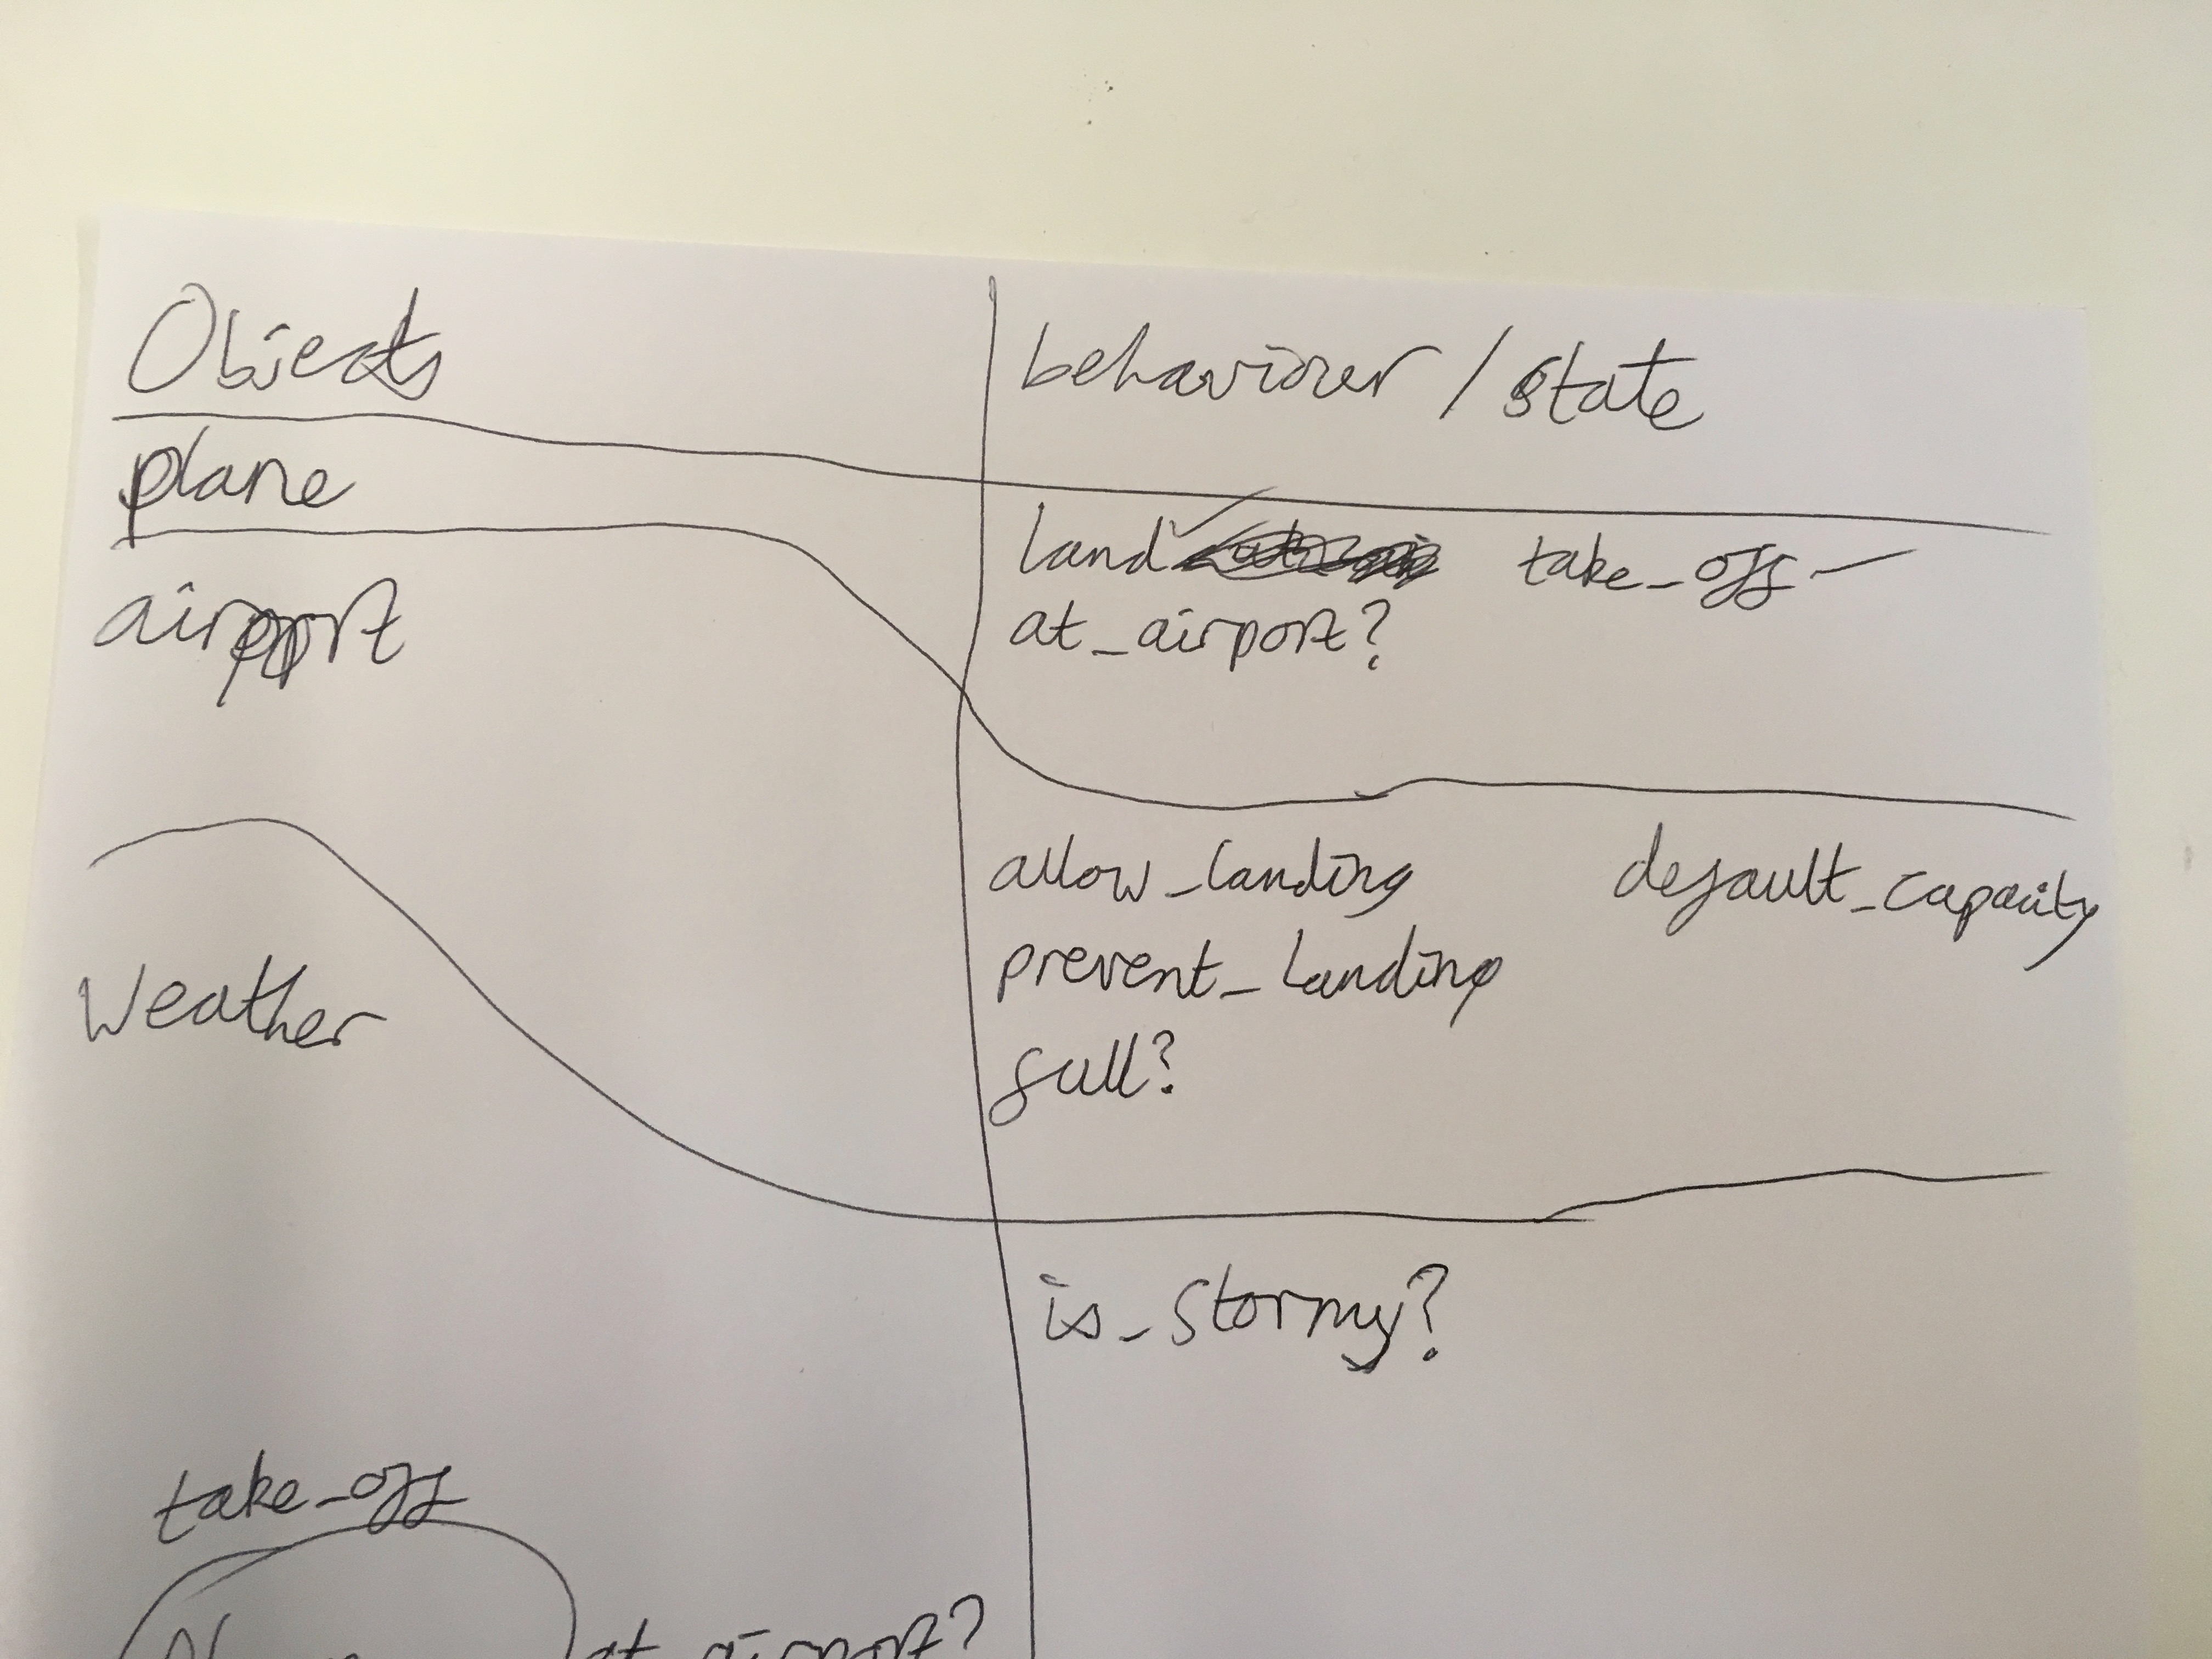 Objects
behaviour / state
plane
land take_off
at_airport?
airport
allow_landing default_capacity
prevent_landing
full?
Weather
is_stormy?
take_off
at_airport?